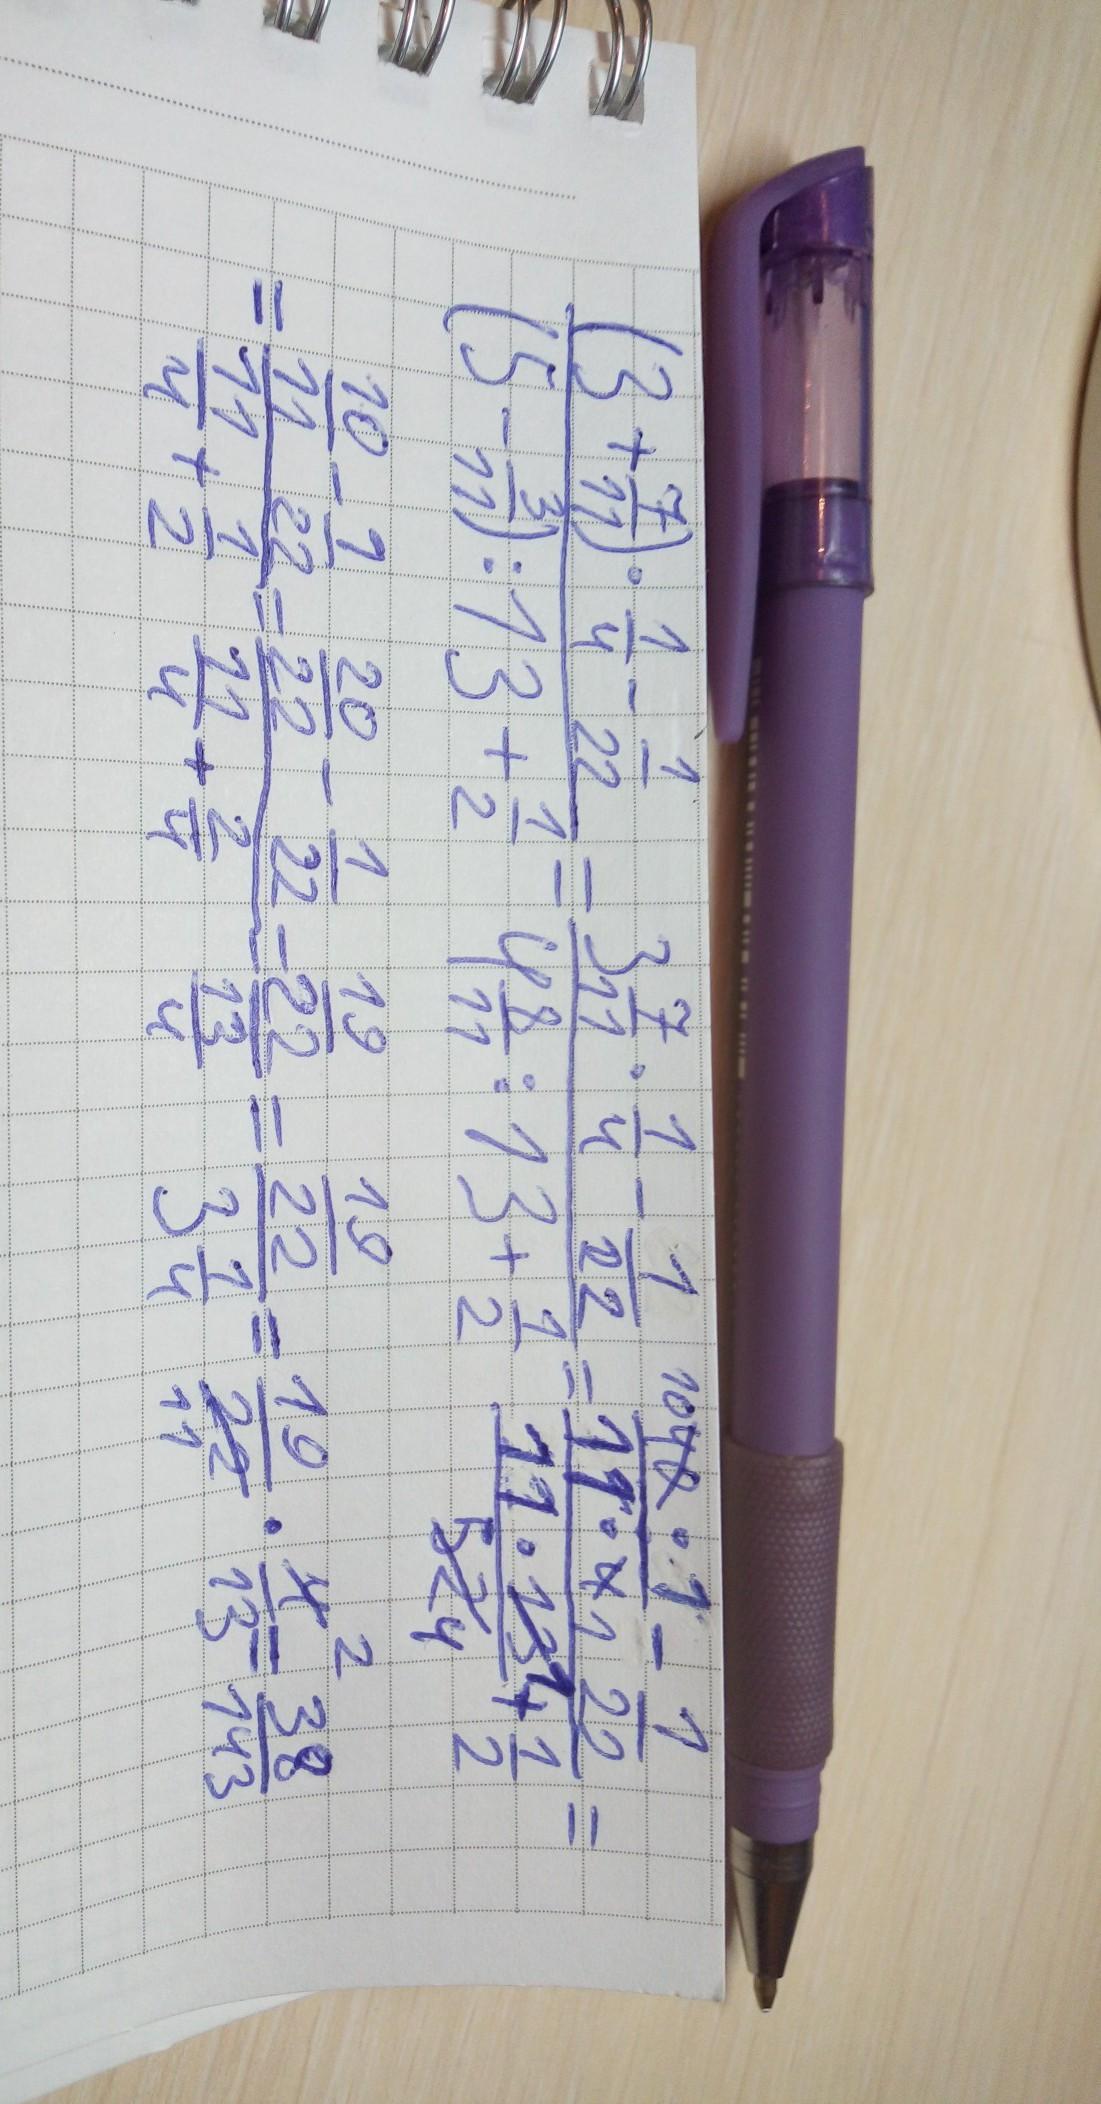 ((3 + 7/11) · 1/4 - 1/22) / ((5 - 3/11) : 13 + 1/2) = (3 7/11 · 1/4 - 1/22) / (4 8/11 : 13 + 1/2) = (10 40 · 1 / 11 · 4 1 - 1/22) / (11 · 13 1 / 52 4 + 1/2) =
= (10/11 - 1/22) / (11/4 + 1/2) = (20/22 - 1/22) / (11/4 + 2/4) = (19/22) / (13/4) = (19/22) / (3 1/4) = 19 / 22 11 · 4 2 / 13 = 38/143